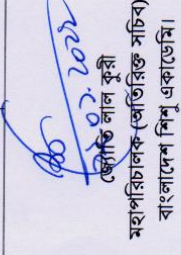 জ্যোতি লাল কুরী
মহাপরিচালক (অতিরিক্ত সচিব)
বাংলাদেশ শিশু একাডেমি।